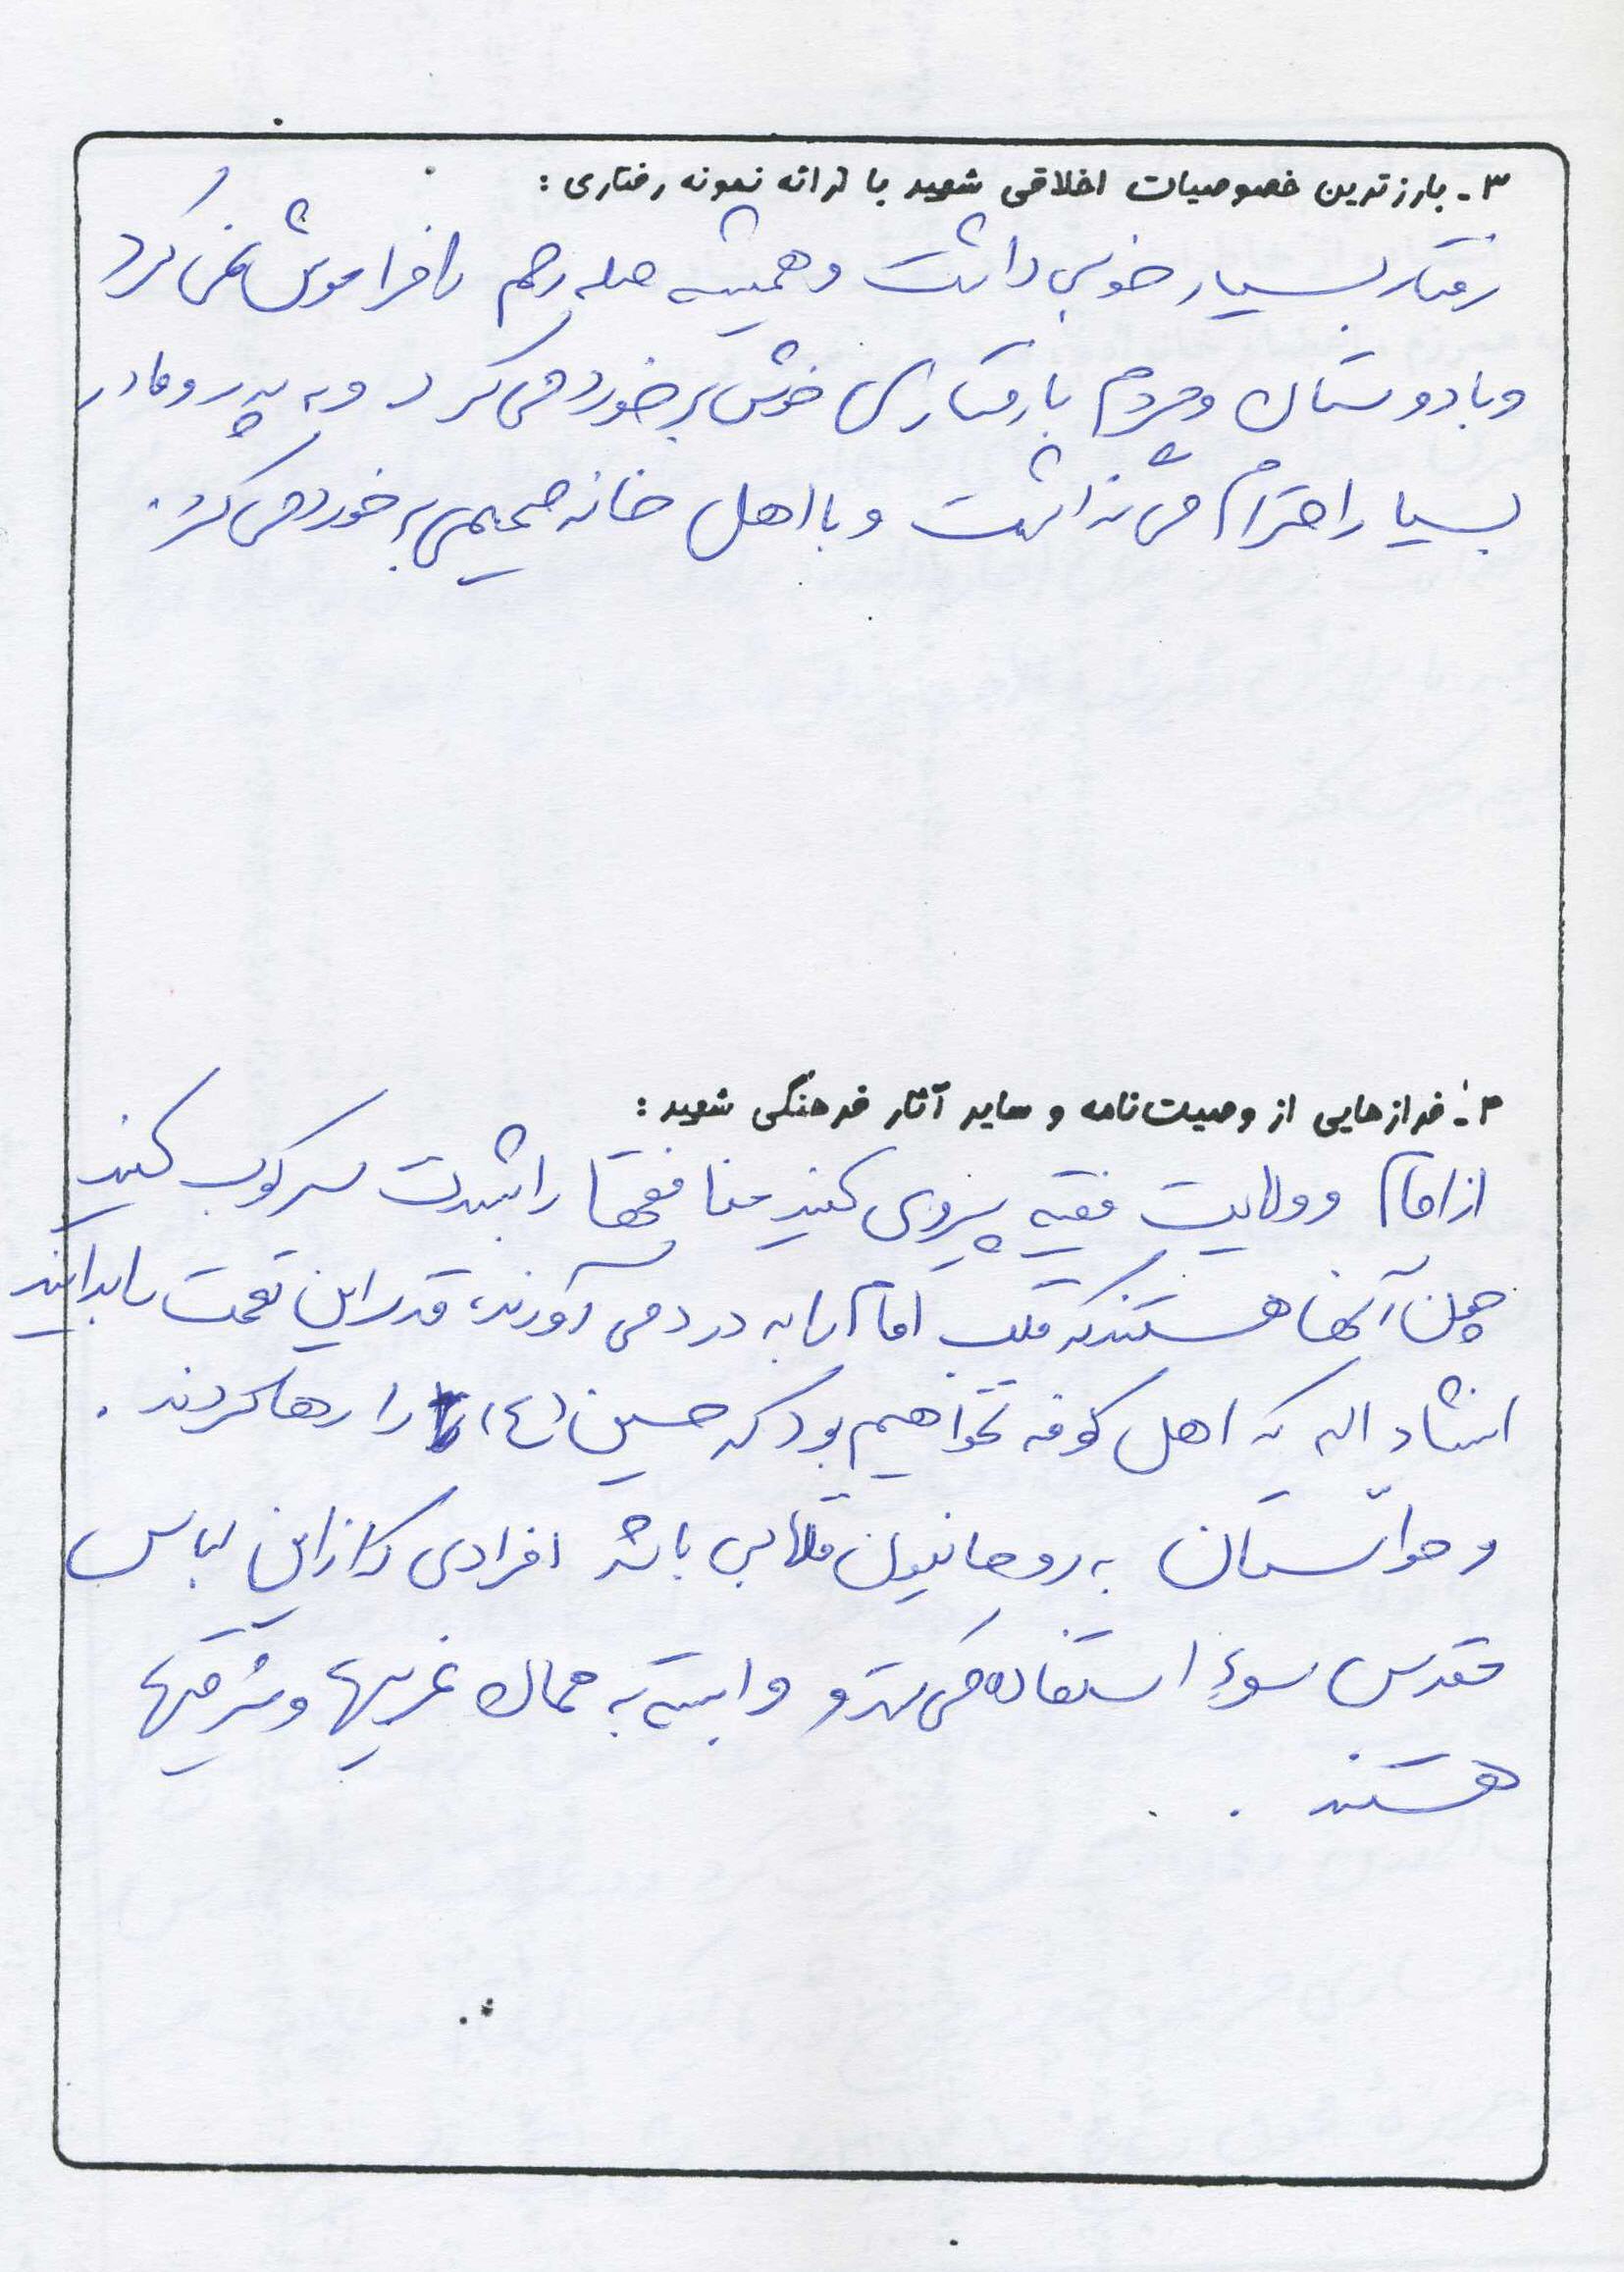 ۳ـ بارزترین خصوصیات اخلاقی شهید با ارائه نمونه رفتاری :
رفتار بسیار خوبی داشت و همیشه صله رحم را فراموش نمی‌کرد
و با دوستان و مردم با رفتاری خوش برخورد می‌کرد و به پدر و مادر
بسیار احترام می‌گذاشت و با اهل خانه صمیمی برخورد می‌کرد.
۴ـ فرازهایی از وصیت‌نامه و سایر آثار فرهنگی شهید :
از امام و ولایت فقیه پیروی کنید منافقها را بشدت سرکوب کنید
چون آنها هستند که قلب امام را به درد می‌آورند، قدر این نعمت را بدانید
انشاء اله که اهل کوفه نخواهیم بود که حسین (ع) را رها کردند .
و حواستان به روحانیون قلابی باشد افرادی که از این لباس
مقدس سوء استفاده می‌کنند و وابسته به ممالک غربیها و شرقیها
هستند .